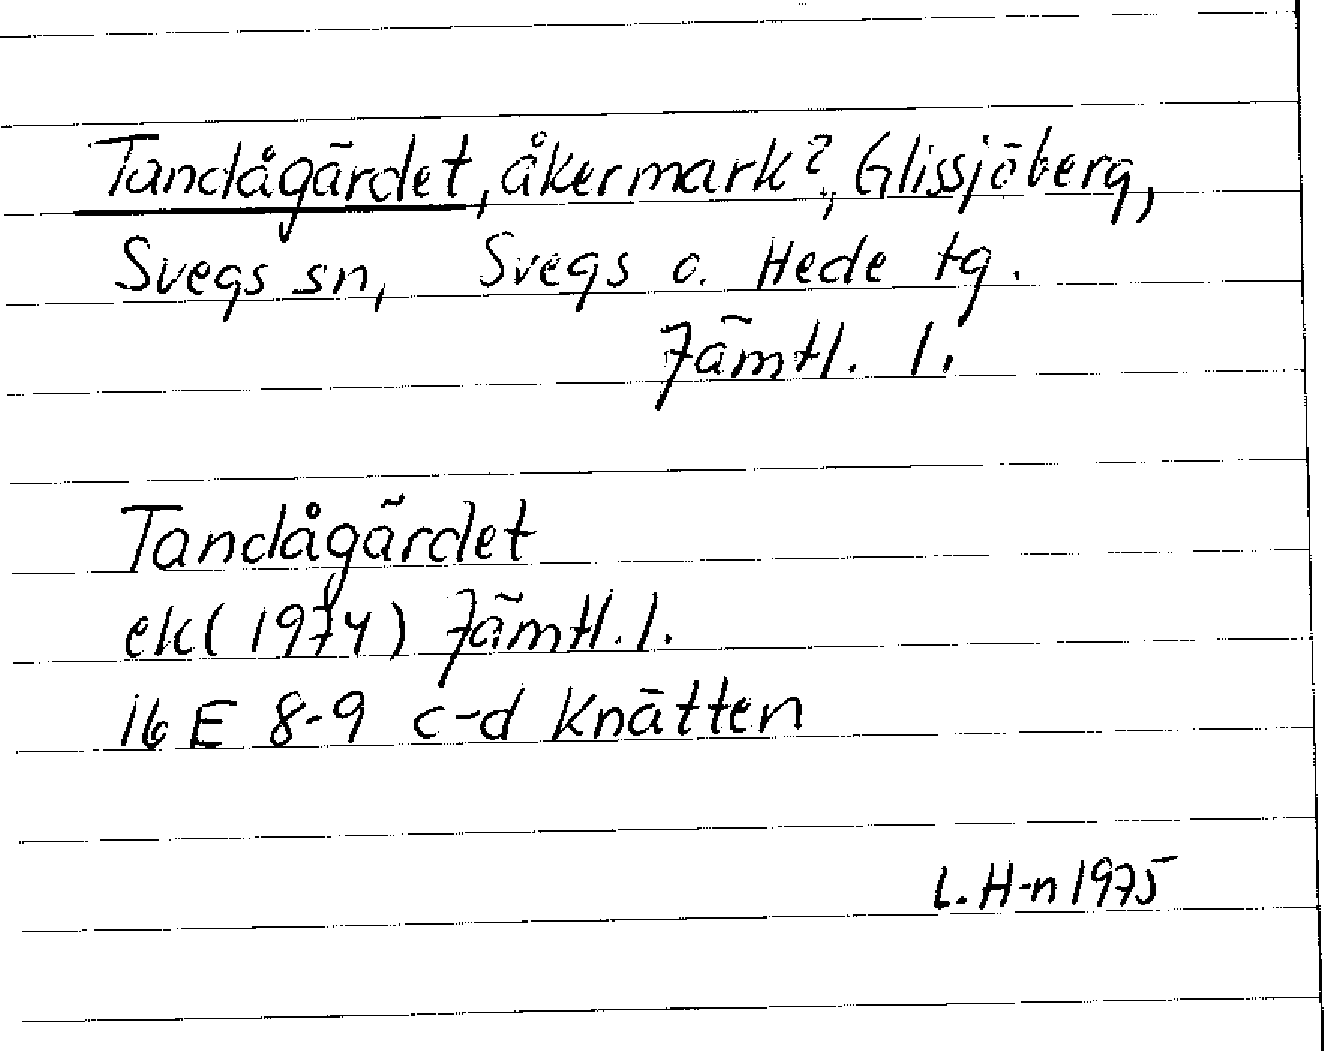 Tandågärdet, åkermark?, Glissjöberg,
Svegs sn, Svegs o. Hede tg.
Jämtl. l.
Tandågärdet
ek (1974) Jämtl. l.
16 E 8-9 c-d Knätten
L. H-n 1975